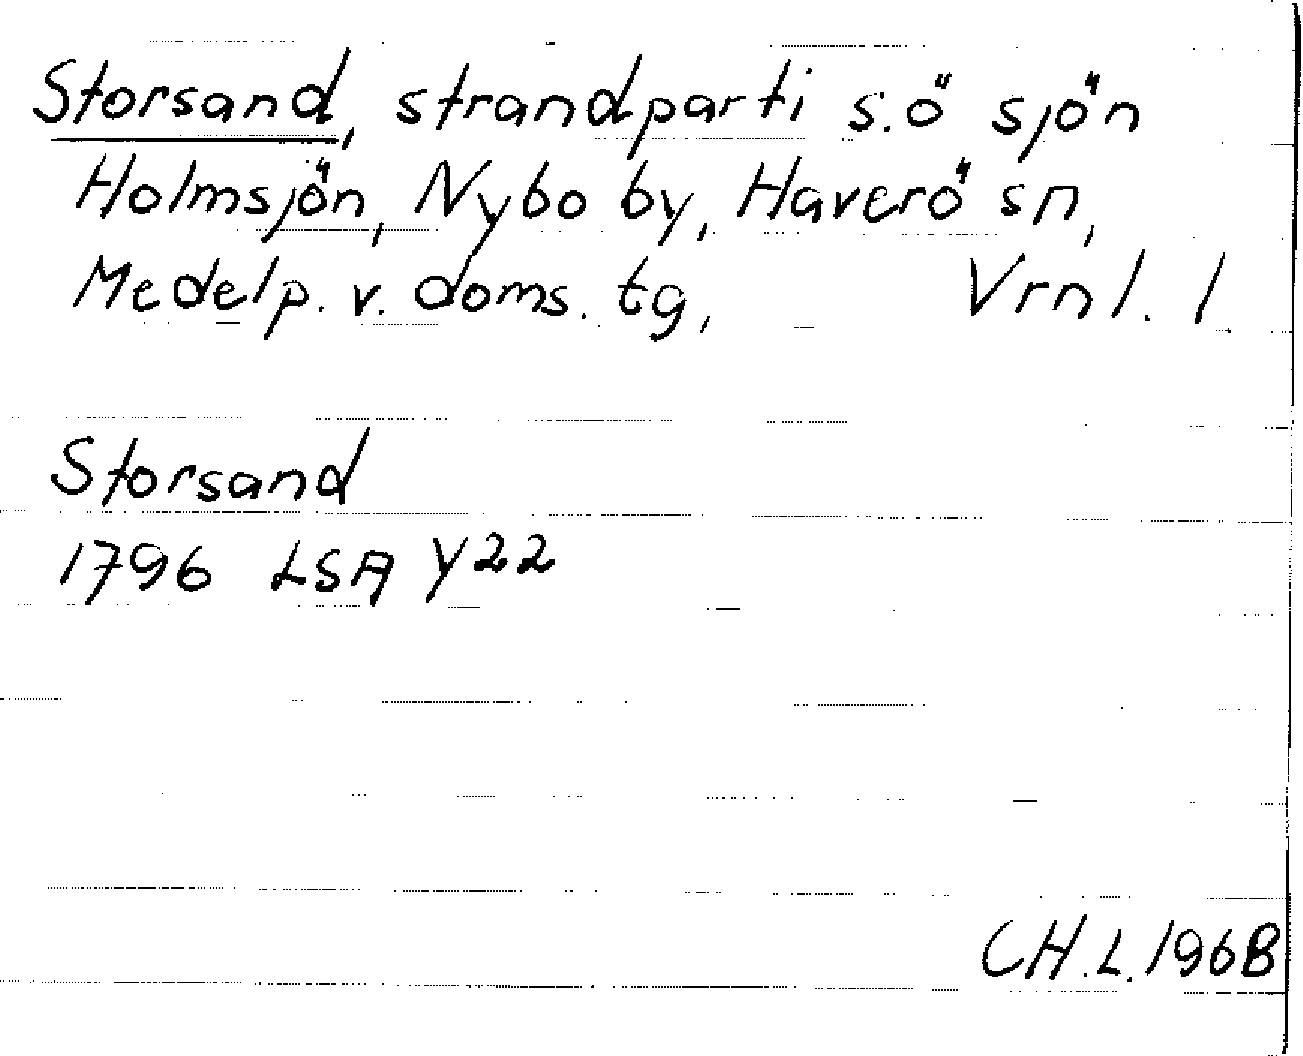 Storsand, strandparti s.ö sjön
Holmsjön, Nybo by, Haverö sn,
Medelp. v. doms. tg, Vrnl. 1
Storsand
1796 LSA Y22
CH.L.1968